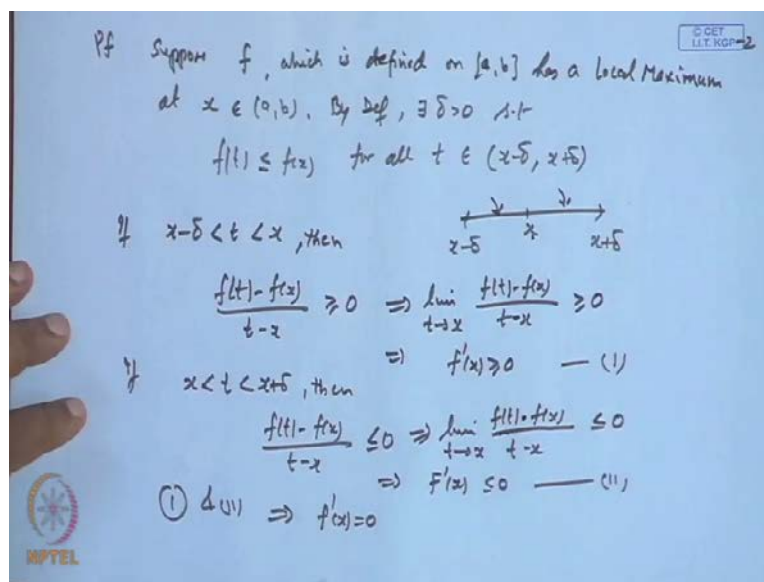 © CET
I.I.T. KGP-2
Pf Suppose f, which is defined on [a,b] has a Local Maximum
at x ∈ (a,b). By Def, ∃ δ>0 s.t
f(t) ≤ f(x) for all t ∈ (x-δ, x+δ)
If x-δ < t < x, then
x-δ x x+δ
f(t)-f(x) / t-x ≥ 0 ⇒ lim t→x f(t)-f(x) / t-x ≥ 0
⇒ f'(x) ≥ 0 — (I)
If x < t < x+δ, then
f(t)-f(x) / t-x ≤ 0 ⇒ lim t→x f(t)-f(x) / t-x ≤ 0
⇒ f'(x) ≤ 0 — (II)
① & (II) ⇒ f'(x)=0
NPTEL